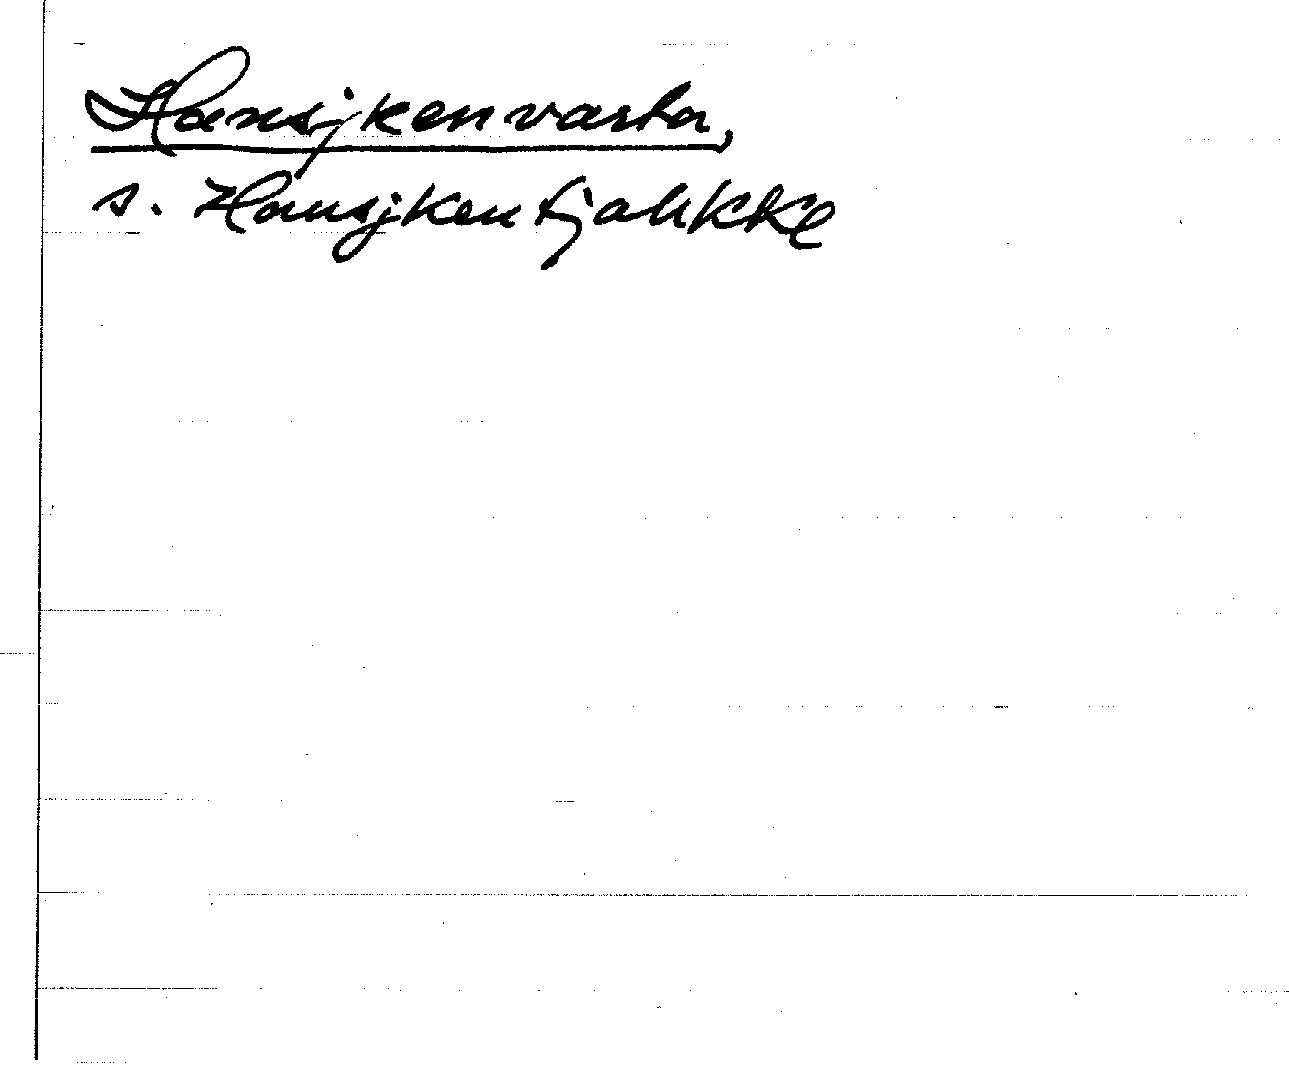 Hansijkenvarta,
s. Hansijkentjahkke